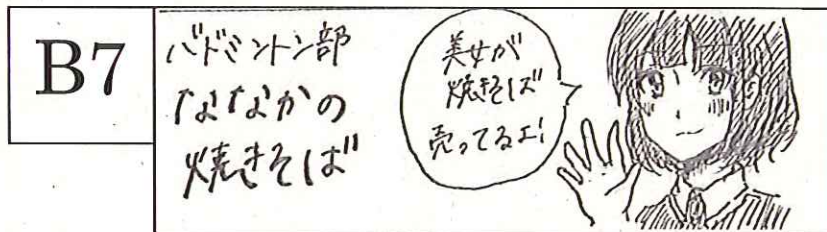 B7
バドミントン部
ななかの
焼きそば
美女が
焼きそば
売ってるよ!